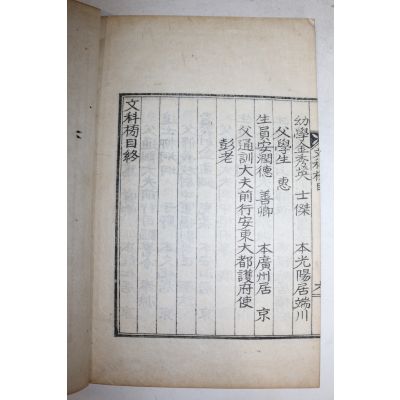 文科榜目
六
幼學金秀英 士傑 本光陽居端川
父學生 憲
生員安潤德 善卿 本廣州居 京
父通訓大夫前行安東大都護府使
彭老
文科榜目終